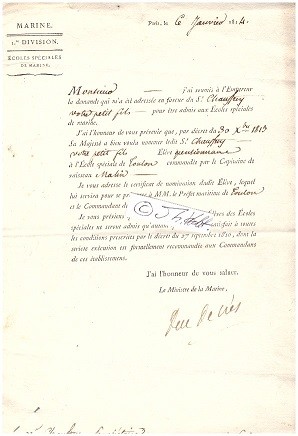 MARINE.
1.re DIVISION.
ÉCOLES SPÉCIALES
DE MARINE.
Paris, le 6 Janvier 1814.
Monsieur j'ai soumis à l'Empereur
la demande qui m'a été adressée en faveur du S.r Chauffry
votre petit fils pour être admis aux Écoles spéciales
de marine.
J'ai l'honneur de vous prévenir que, par décret du 30 X.bre 1813
Sa Majesté a bien voulu nommer ledit S.r Chauffry
votre petit fils Élève pensionnaire
à l'École spéciale de Toulon commandée par le Capitaine de
vaisseau
Je vous adresse le certificat de nomination dudit Élève, lequel
lui servira pour se MM. le Préfet maritime de Toulon
et le Commandant de
Je vous préviens des Écoles
spéciales ne seront admis qu'autant satisfait à toutes
les conditions prescrites par le décret du 27 septembre 1810, dont la
stricte exécution est formellement recommandée aux Commandans
de ces établissemens.
J'ai l'honneur de vous saluer.
Le Ministre de la Marine,
Duc Decrès